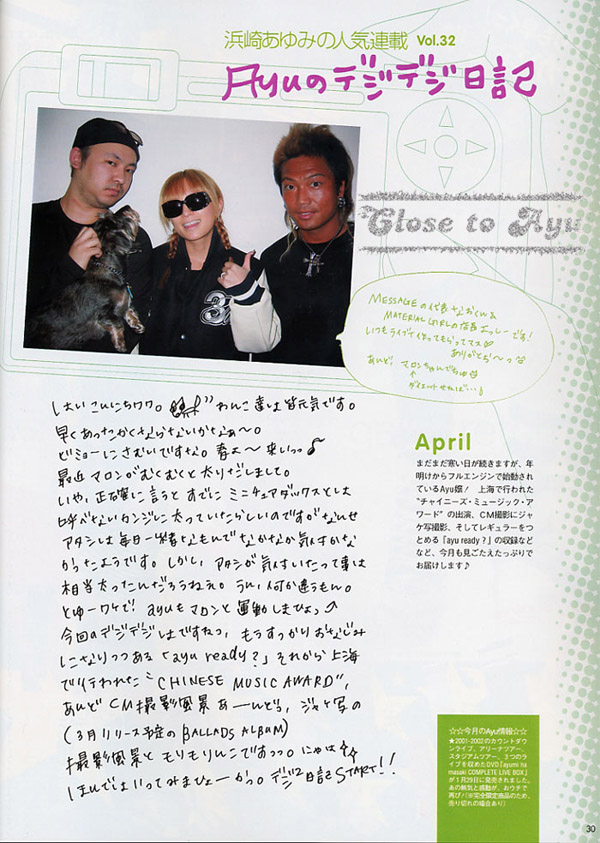 浜崎あゆみの人気連載 Vol.32
Ayuのデジデジ日記
Close to Ayu
MESSAGEの代表なおくん&
MATERIAL GIRLの店長よっしーです!
いつもライブで作ってもらってマス♡
ありがとお〜っ
あんど、マロンちゃんでちゅ
↑
ダイエットせねば…♪
はいこんにちワワ。わんこ達は皆元気です。
早くあったかくならないかなぁ〜。
ビミョーにさむいですな。春よ〜来いっ♪
最近マロンがむくむくと太りだしました。
いや、正確に言うとすでにミニチュアダックスとは
呼べないカンジに太っていたらしいのですがなんせ
アタシは毎日一緒なもんでなかなか気付かな
かったようです。しかし、アタシが気付いたって事は
相当太ったんだろうねぇ。うん、何か違うもん。
とゆーワケで!ayuもマロンと運動しまひょっ
今回のデジデジはですねっ、もうすっかりおなじみ
になりつつある「ayu ready?」それから上海
で行われた"CHINESE MUSIC AWARD",
あんどCM撮影風景あーんどぅ、ジャケ写の
(3月リリース予定のBALLADS ALBUM)
撮影風景ともりもりんこですっっ。にゃは
ほんでは いってみまひょーかっ。デジ2日記START!!
April
まだまだ寒い日が続きますが、年
明けからフルエンジンで始動され
ているAyu嬢! 上海で行われた
“チャイニーズ・ミュージック・ア
ワード”の出演、CM撮影にジャ
ケ写撮影、そしてレギュラーをつ
とめる「ayu ready?」の収録など
など、今月も見ごたえたっぷりで
お届けします♪
☆☆今月のAyu情報☆☆
★2001-2002のカウントダ
ウンライブ、アリーナツアー、
スタジアムツアー、3つのラ
イブを収めたDVD『ayumi ha
masaki COMPLETE LIVE BOX』
が1月29日に発売されました。
あの熱気と感動が、おウチで
再び!(※完全限定商品のため、
売り切れの場合あり)
30